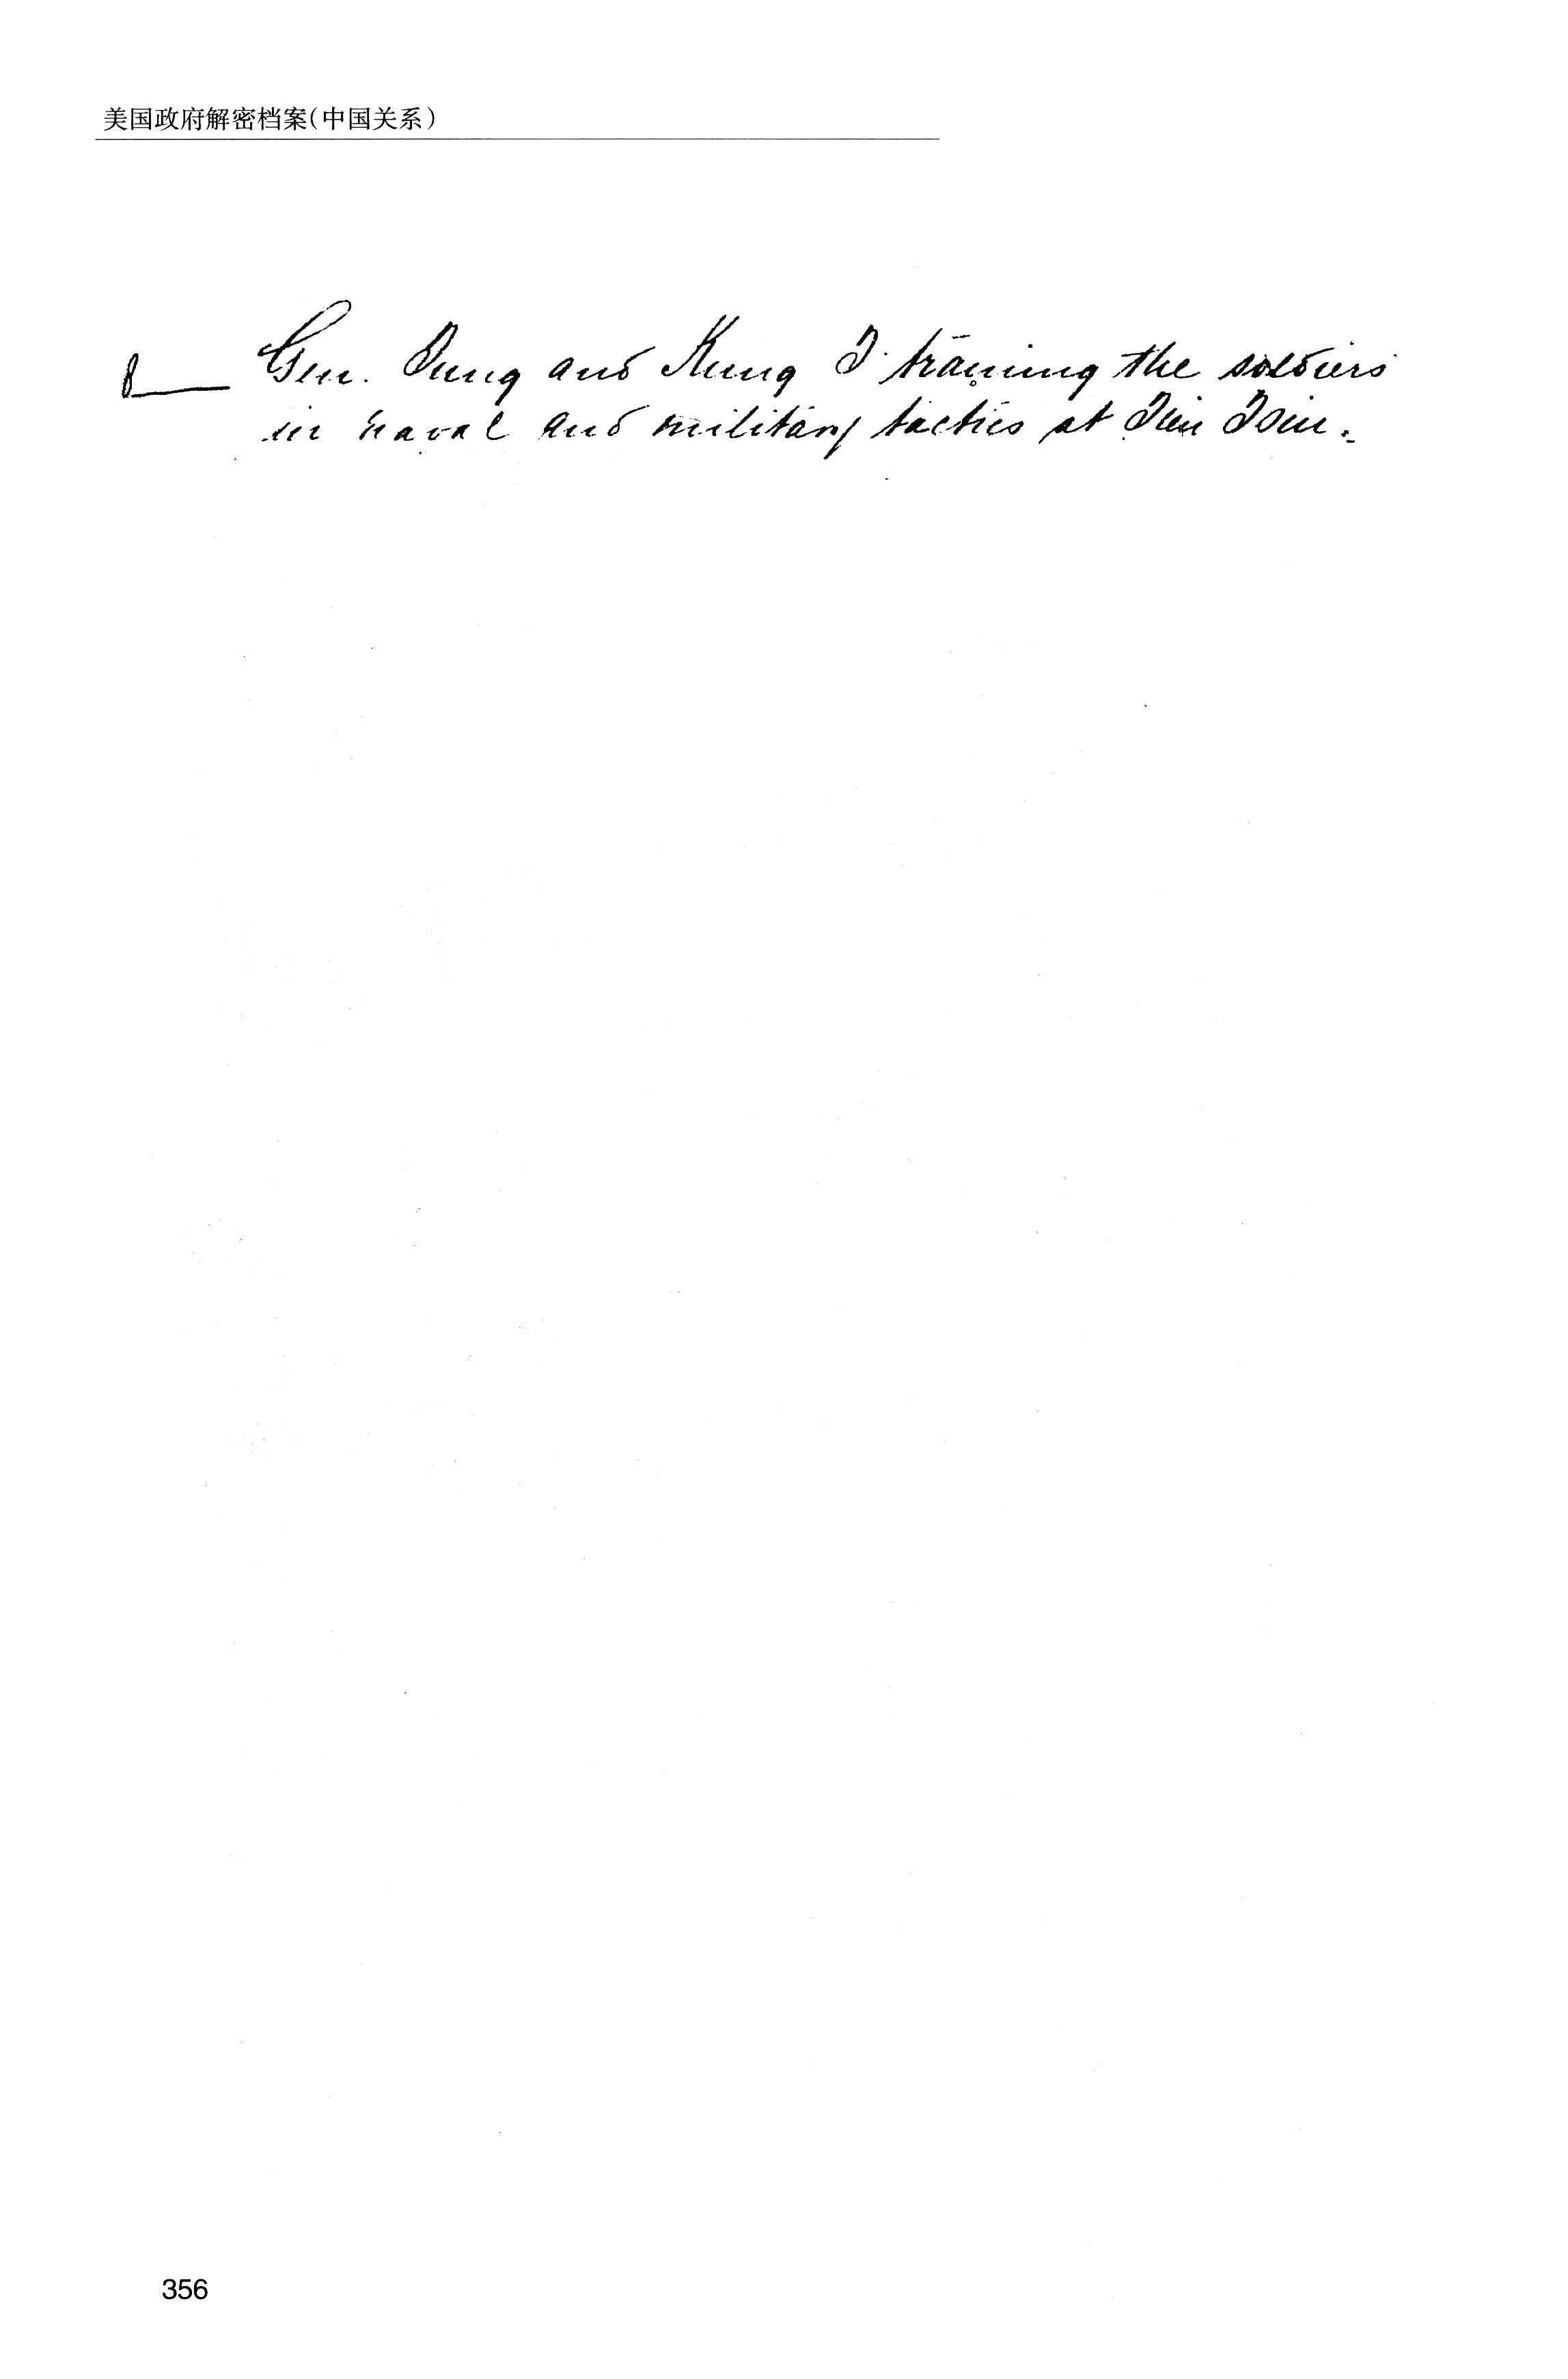 美国政府解密档案(中国关系)
Gen. Tung and Kung I training the soldiers
in naval and military tactics at Tien Tsin.
356